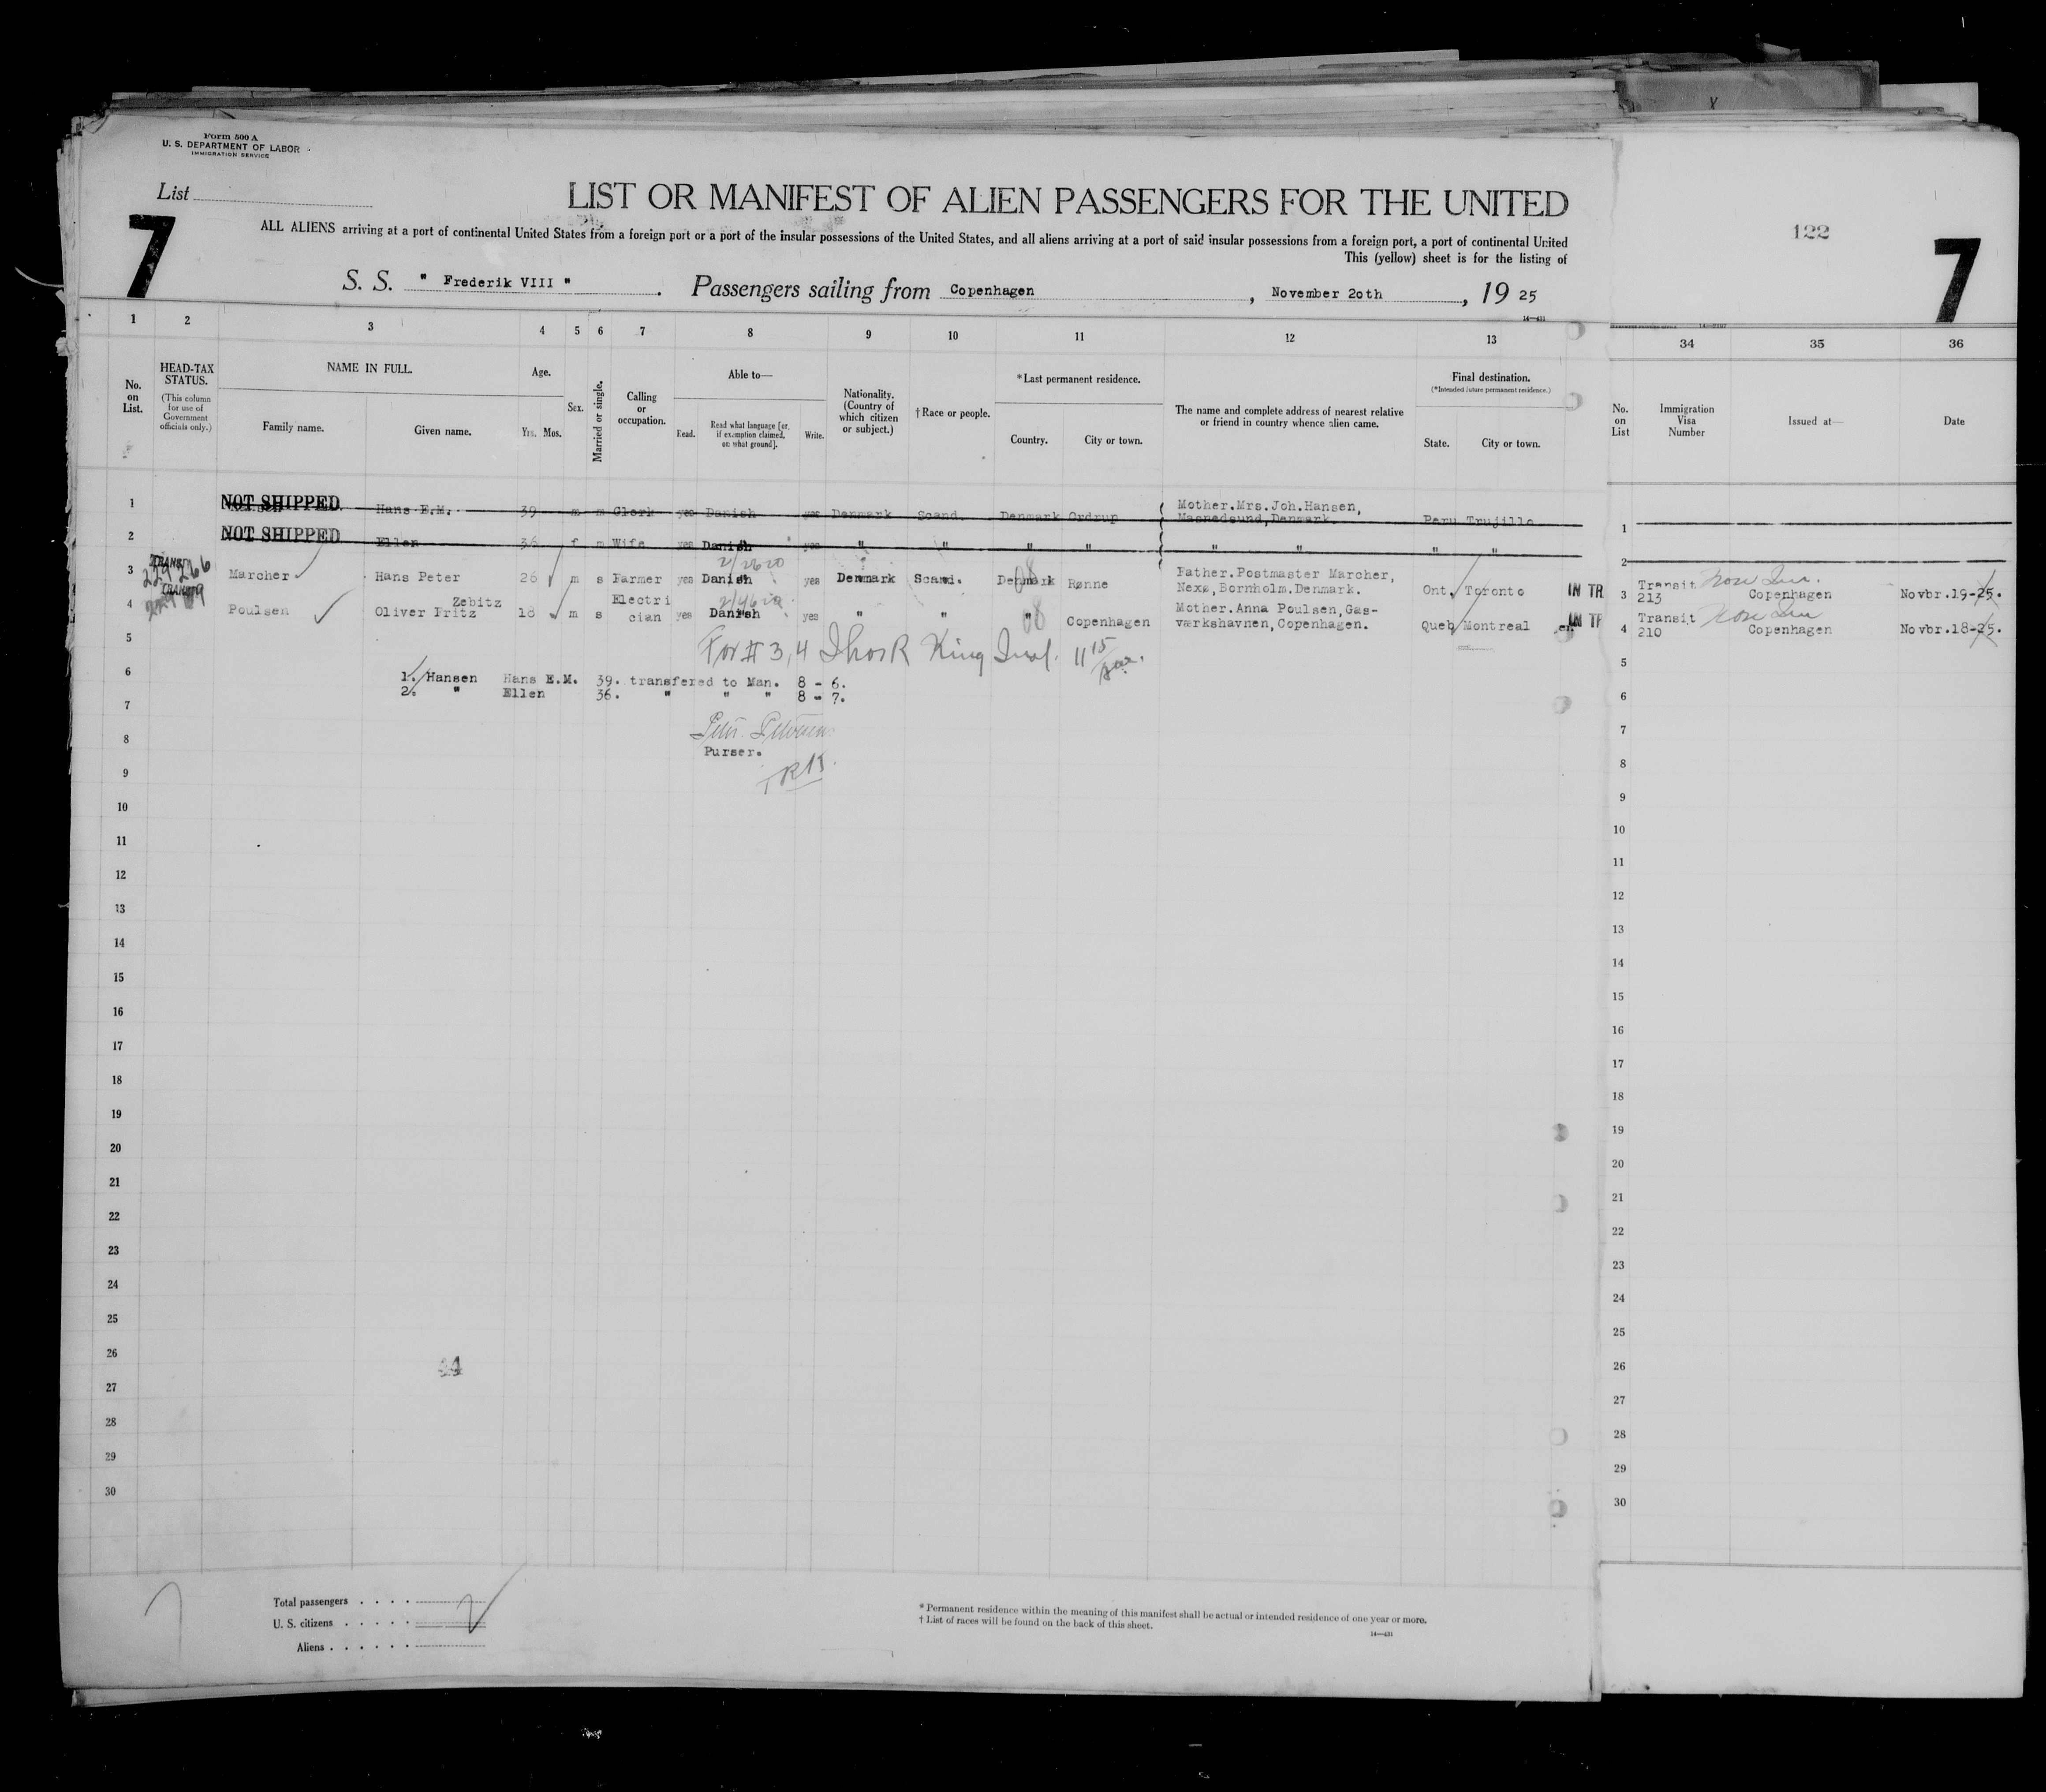 Form 500 A
U. S. DEPARTMENT OF LABOR
IMMIGRATION SERVICE
List
LIST OR MANIFEST OF ALIEN PASSENGERS FOR THE UNITED
7
ALL ALIENS arriving at a port of continental United States from a foreign port or a port of the insular possessions of the United States, and all aliens arriving at a port of said insular possessions from a foreign port, a port of continental United
This (yellow) sheet is for the listing of
122
7
S. S. " Frederik VIII " . Passengers sailing from Copenhagen , November 20th , 19 25
14—431
1 2 3 4 5 6 7 8 9 10 11 12 13 34 35 36
No. on List.
HEAD-TAX STATUS.
(This column for use of Government officials only.)
NAME IN FULL.
Family name. Given name.
Age.
Yrs. Mos.
Sex.
Married or single.
Calling or occupation.
Able to—
Read. Read what language [or, if exemption claimed, on what ground]. Write.
Nationality. (Country of which citizen or subject.)
†Race or people.
*Last permanent residence.
Country. City or town.
The name and complete address of nearest relative or friend in country whence alien came.
Final destination.
(*Intended future permanent residence.)
State. City or town.
No. on List
Immigration Visa Number
Issued at—
Date
1 NOT SHIPPED Hans E.M. 39 m m Clerk yes Danish yes Denmark Scand. Denmark Ordrup Mother.Mrs.Joh.Hansen, Peru Trujillo 1
Masnedsund,Denmark.
2 NOT SHIPPED Ellen 36 f m Wife yes Danish yes " " " " " " " " 2
3 TRANSIT Marcher Hans Peter 26 m s Farmer yes Danish yes Denmark Scand. Denmark Rønne Father.Postmaster Marcher, Ont. Toronto IN TR 3 Transit Copenhagen Novbr.19-25.
Nexø,Bornholm.Denmark. 213
4 TRANSIT Poulsen Zebitz Electri
Oliver Fritz 18 m s cian yes Danish yes " " " Copenhagen Mother.Anna Poulsen,Gas- Queb Montreal IN TR 4 Transit Copenhagen Novbr.18-25.
værkshavnen,Copenhagen. 210
5 For # 3,4 King 11 15 5
6 1. Hansen Hans E.M. 39. transfered to Man. 8 - 6. 6
2. " Ellen 36. " " " 8 - 7.
7 7
8 8
Purser.
9 9
10 10
11 11
12 12
13 13
14 14
15 15
16 16
17 17
18 18
19 19
20 20
21 21
22 22
23 23
24 24
25 25
26 26
27 27
28 28
29 29
30 30
Total passengers . . . .
U. S. citizens . . . . .
Aliens . . . . . .
* Permanent residence within the meaning of this manifest shall be actual or intended residence of one year or more.
† List of races will be found on the back of this sheet.
14—431